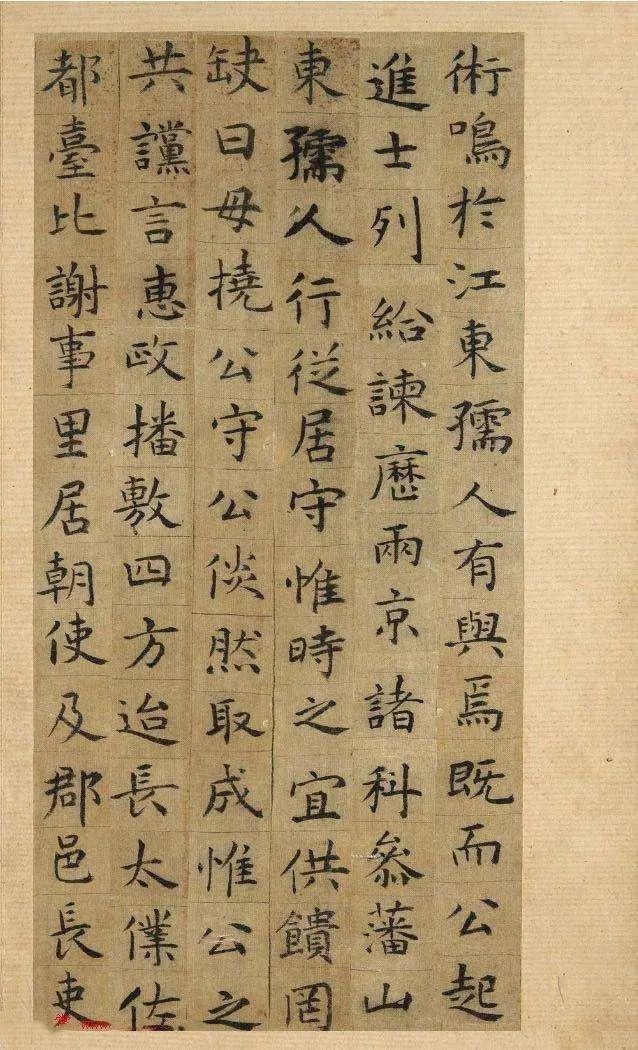 術鳴於江東孺人有與焉既而公起
進士列給諫歷兩京諸科叅藩山
東孺人行從居守惟時之宜供饋罔
缺曰毋撓公守公倓然取成惟公之
共讜言惠政播敷四方迨長太僕佐
都臺比謝事里居朝使及郡邑長吏